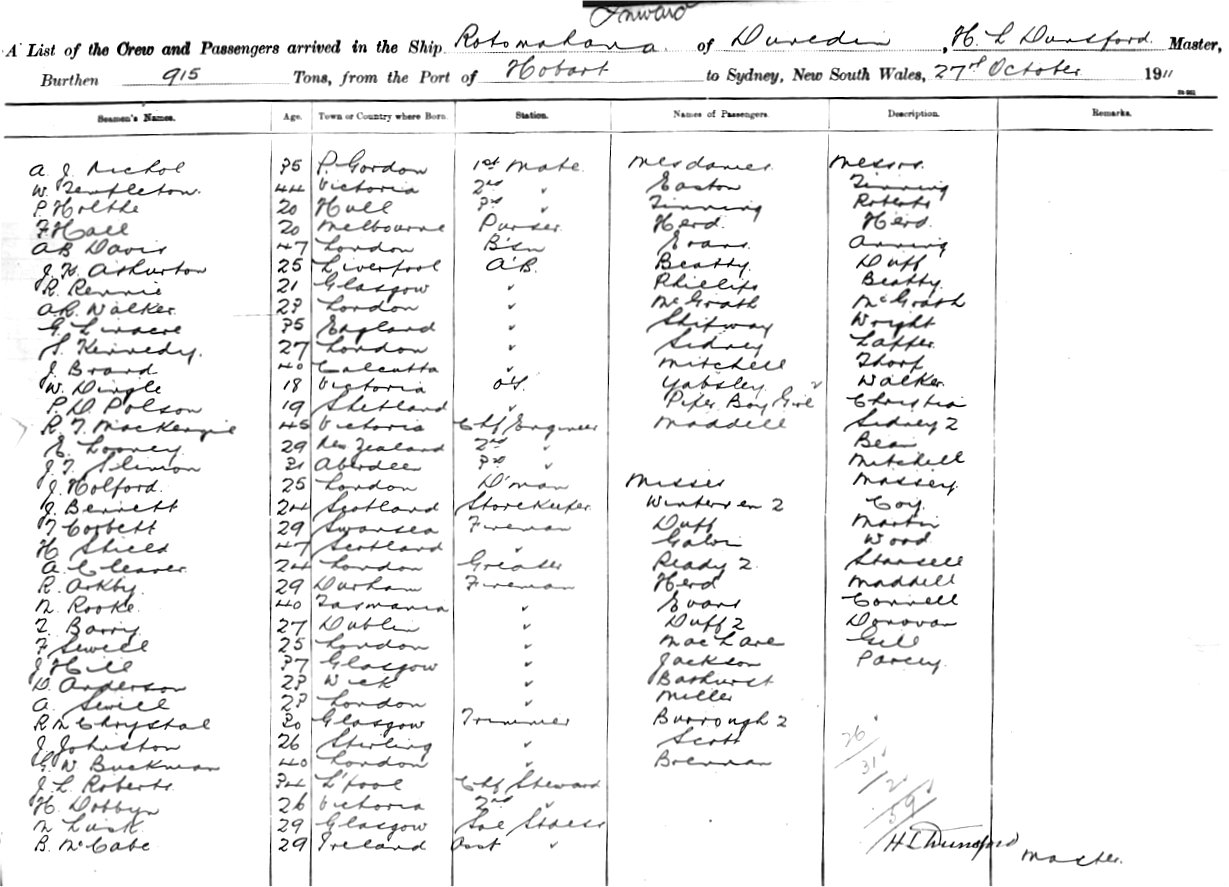 Inward
A List of the Crew and Passengers arrived in the Ship Rotomahana of Dunedin, H. L Dunsford Master,
Burthen 915 Tons, from the Port of Hobart to Sydney, New South Wales, 27th October 1911
Seamen's Names. Age. Town or Country where Born. Station. Names of Passengers. Description. Remarks.
A. J. Nichol 35 P. Gordon 1st Mate Mesdames Messrs
W. Templeton 44 Victoria 2nd " Easton Tinning
P. Holthe 20 Hull 3rd " Tinning Roberts
F Hall 20 Melbourne Purser Herd Herd
AB Davis 47 London B'sn Evans Anning
J. H. Ashurton 25 Liverpool A.B. Beatty Duff
R. Rennie 21 Glasgow " Phillips Beatty
A.R. Walker 23 London " McGrath McGrath
G. Linacre 35 England " Shipway Wright
S. Kennedy. 27 London " Sidney Lapper
J. Brand 40 Calcutta " Mitchell Thorp
W. Dingle 18 Victoria O.S. Yabsley Walker
P. D. Polson 19 Shetland " Piper Boy Girl Christia
R. T. Mackenzie 45 Victoria Chf Engineer Maddell Sidney 2
E. Looney 29 New Zealand 2nd " Bean
J. T. Slimon 21 Aberdeen 3rd " Mitchell
J. Holford. 25 London D'man Misses Massey
J. Bennett 24 Scotland Storekeeper 2 Coy
T Corbett 29 Swansea Fireman Duff Martin
H Shield 47 Scotland " Galvin Wood
A. Cleaver 24 London Greaser Ready 2 Stansell
R. Arkby 29 Durham Fireman Herd Maddell
N. Rooke 40 Tasmania " Evans Connell
T. Barry 27 Dublin " Duff 2 Donovan
F Sewell 25 London " MacLare Gill
J Hill 37 Glasgow " Jackson Parcey
D. Anderson 23 Wick " Bathurst
A. Sewell 23 London " Miller
R. M. Chrystal 30 Glasgow Trimmer Burrough 2
J. Johnston 26 Sterling " Scott
G. W. Buckman 40 London " Brennan
J. L. Roberts 34 L'pool Chf Steward
H. Dobbyn 26 Victoria 2nd "
N Lusk 29 Glasgow
B. McCabe 29 Ireland Asst "
26
31
2
59
H L Dunsford
Master.